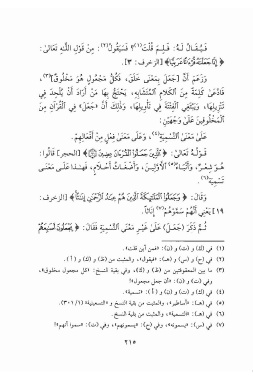 فَيُقَالُ لَهُ: فَلِمَ قُلْتَ(١)؟ فَسَيَقُولُ(٢): مِنْ قَوْلِ اللَّهِ تَعَالَىٰ:
﴿إِنَّا جَعَلْنَٰهُ قُرْءَٰنًا عَرَبِيًّا﴾ [الزخرف: ٣].
وَزَعَمَ أَنَّ [جَعَلَ بِمَعْنَى خَلَقَ، فَكُلُّ مَجْعُولٍ هُوَ مَخْلُوقٌ](٣)،
فَادَّعَىٰ كَلِمَةً مِنْ الْكَلَامِ الْمُتَشَابِهِ، يَحْتَجُّ بِهَا مَنْ أَرَادَ أَنْ يُلْحِدَ فِي
تَنْزِيلِهَا، وَيَبْتَغِي الْفِتْنَةَ فِي تَأْوِيلِهَا، وَذَلِكَ أَنَّ «جَعَلَ» فِي الْقُرْآنِ مِنَ
الْمَخْلُوقِينَ عَلَىٰ وَجْهَيْنِ:
عَلَىٰ مَعْنَى التَّسْمِيَةِ(٤)، وَعَلَىٰ مَعْنَى فِعْلٍ مِنْ أَفْعَالِهِمْ.
قَوْلُهُ تَعَالَىٰ: ﴿الَّذِينَ جَعَلُوا الْقُرْءَانَ عِضِينَ﴾ [الحجر] قَالُوا:
هُوَ شِعْرٌ، وَأَنْبَاءُ(٥) الْأَوَّلِينَ، وَأَضْغَاثُ أَحْلَامٍ، فَهَذَا عَلَىٰ مَعْنَى
تَسْمِيَةٍ(٦).
وَقَالَ: ﴿وَجَعَلُوا الْمَلَٰٓئِكَةَ الَّذِينَ هُمْ عِبَٰدُ الرَّحْمَٰنِ إِنَٰثًا﴾ [الزخرف:
١٩] يَعْنِي أَنَّهُمْ سَمَّوْهُمْ(٧) إِنَاثًا.
ثُمَّ ذَكَرَ (جَعَلَ) عَلَىٰ غَيْرِ مَعْنَى التَّسْمِيَةِ فَقَالَ: ﴿يَجْعَلُونَ أَصَٰبِعَهُمْ
(١) في (ك) و(ت) و(ن): «فمن أين قلت».
(٢) في (ح) و(س) و(هـ): «فيقول»، والمثبت من (ظ) و(ك) و(أ).
(٣) ما بين المعقوفتين من (ظ) و(ك)، وفي بقية النسخ: «كل مجعول مخلوق»،
وفي (ت) و(ن): «أن جعل مجعول»!
(٤) في (ك) و(ت) و(ن) و(أ): «تسمية».
(٥) في (هـ): «أساطير»، والمثبت من بقية النسخ و«التسعينية» (٣٠١/١)
(٦) في (هـ): «التسمية»، والمثبت من بقية النسخ.
(٧) في (س): «يسمونه»، وفي (ح): «يسمونهم»، وفي (ت): «سموا أنهم»!
٢١٥